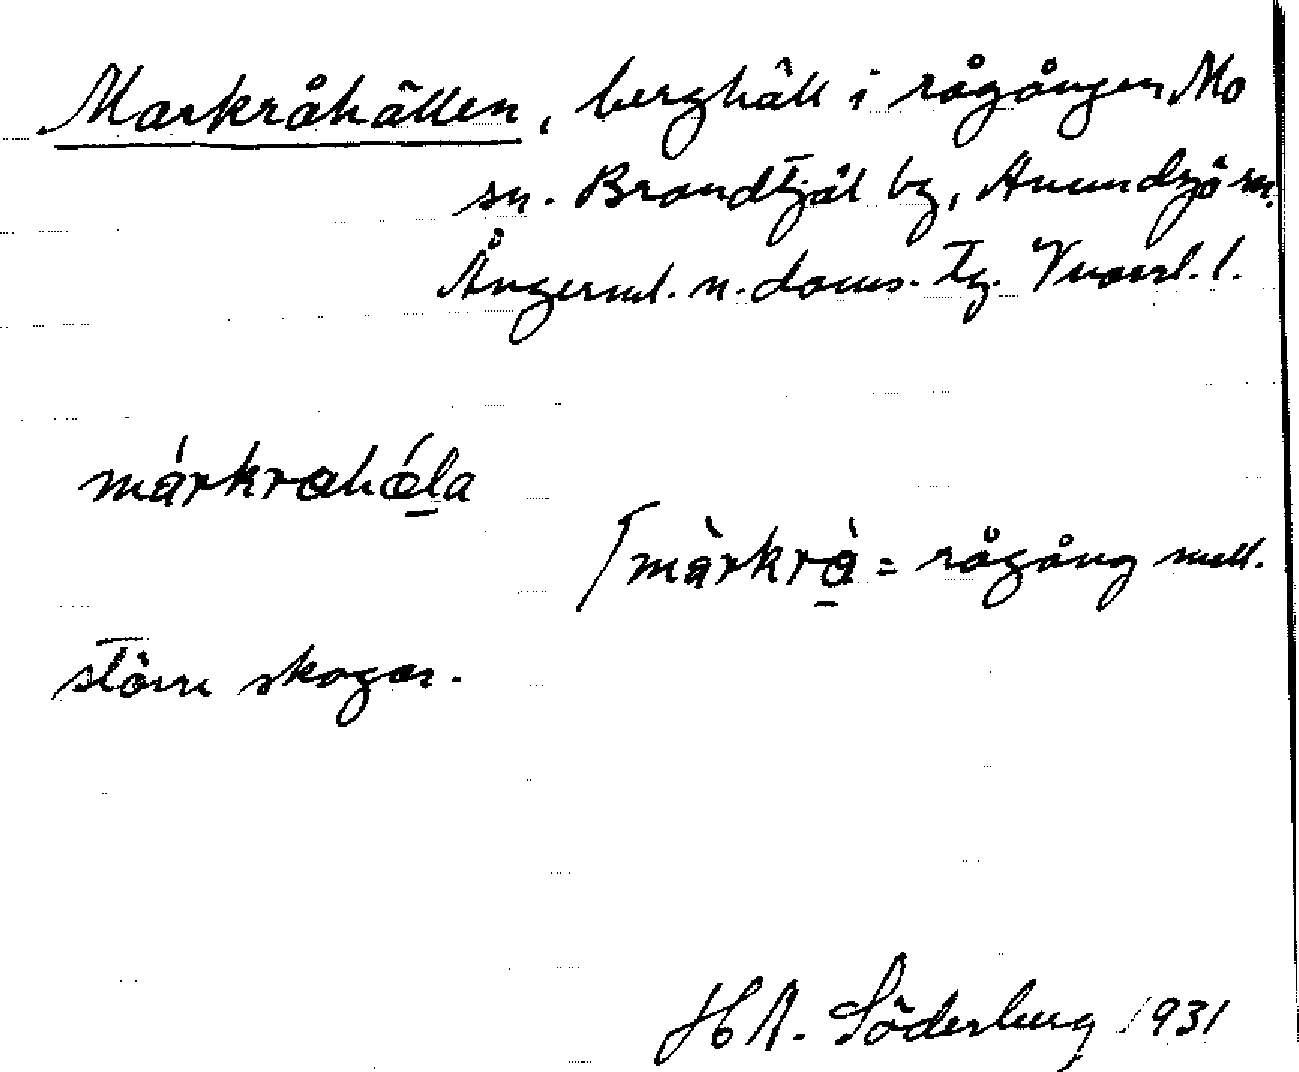 Markråhällen, berghäll i rågången Mo
sn. Brandtjäl by, Anundsjö sn.
Ångerml. n. doms. tg. Vnorrl. l.
márkrahǽla
/márkrå = rågång mell.
större skogar.
H A. Söderberg 1931